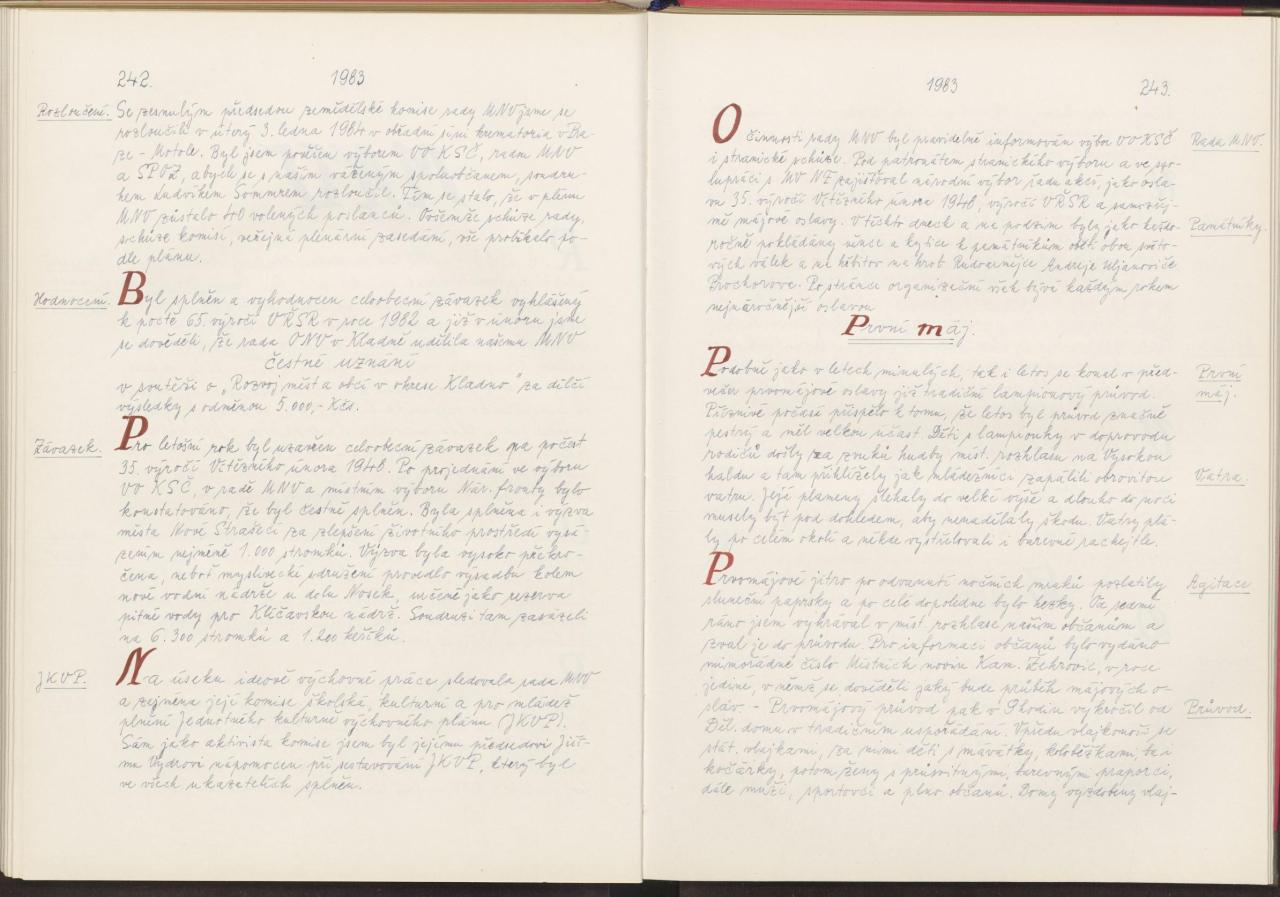 242.
1983
Rozloučení.
Se zesnulým předsedou zemědělské komise rady MNV jsme se
rozloučili v úterý 3. ledna 1984 v obřadní síni krematoria v Pra-
ze - Motole. Byl jsem pověřen výborem VO KSČ, radou MNV
a SPOZ, abych se s naším váženým spoluobčanem, soudru-
hem Ludvíkem Sommrem rozloučil. Tím se stalo, že v plénu
MNV zůstalo 40 volených poslanců. Ovšemže schůze rady,
schůze komisí, veřejná plenární zasedání, vše probíhalo po-
dle plánu.
Hodnocení.
Byl splněn a vyhodnocen celoobecní závazek vyhlášený
k poctě 65. výročí VŘSR v roce 1982 a již v únoru jsme
se dověděli, že rada ONV v Kladně udělila našemu MNV
čestné uznání
v soutěži o „Rozvoj míst a obcí v okrese Kladno" za dílčí
výsledky s odměnou 5.000,- Kčs.
Závazek.
Pro letošní rok byl uzavřen celoobecní závazek na počest
35. výročí Vítězného února 1948. Po projednání ve výboru
VO KSČ, v radě MNV a místním výboru Nár. fronty bylo
konstatováno, že byl čestně splněn. Byla splněna i výzva
města Nové Strašecí za zlepšení životního prostředí vysá-
zením nejméně 1.000 stromků. Výzva byla vysoko překro-
čena, neboť myslivecké sdružení provedlo výsadbu kolem
nové vodní nádrže u dolu Nosek, určené jako rezerva
pitné vody pro Klíčavskou nádrž. Soudruzi tam zasázeli
na 6.300 stromků a 1.200 keříků.
JKVP.
Na úseku ideově výchovné práce sledovala rada MNV
a zejména její komise školská, kulturní a pro mládež
plnění Jednotného kulturně výchovného plánu (JKVP).
Sám jako aktivista komise jsem byl jejímu předsedovi Jiří-
mu Vydrovi nápomocen při sestavování JKVP, který byl
ve všech ukazatelích splněn.
1983
243.
O činnosti rady MNV byl pravidelně informován výbor VO KSČ
i stranické schůze. Pod patronátem stranického výboru a ve spo-
lupráci s MV NF zajišťoval národní výbor řadu akcí, jako osla-
vu 35. výročí Vítězného února 1948, výročí VŘSR a samozřej-
mě májové oslavy. V těchto dnech a na podzim byly jako každo-
ročně pokládány věnce a kytice k památníkům obětí obou světo-
vých válek a na hřbitov na hrob Rudoarmějce Andreje Uljanoviče
Prochorova. Po stránce organizační však bývá každým rokem
nejnáročnější oslavou
Rada MNV.
Památníky.
První máj.
Podobně jako v letech minulých, tak i letos se konal v před-
večer prvomájové oslavy již tradiční lampionový průvod.
Příznivé počasí přispělo k tomu, že letos byl průvod značně
pestrý a měl velkou účast. Děti s lampionky v doprovodu
rodičů došly za zvuků hudby míst. rozhlasu na Vysokou
haldu a tam přihlížely jak mládežníci zapálili obrovitou
vatru. Její plameny šlehaly do velké výše a dlouho do noci
musely být pod dohledem, aby nenadělaly škodu. Vatry plá-
ly po celém okolí a někde vystřelovali i barevné rachejtle.
První
máj.
Vatra.
Prvomájové jitro po odvanutí nočních mraků pozlatily
sluneční paprsky a po celé dopoledne bylo hezky. Od sedmi
ráno jsem vyhrával v míst. rozhlase našim občanům a
zval je do průvodu. Pro informaci občanů bylo vydáno
mimořádné číslo Místních novin Kam. Žehrovic, v roce
jediné, v němž se dověděli jaký bude průběh májových o-
slav. - Prvomájový průvod pak v 9 hodin vykročil od
Děl. domu v tradičním uspořádání. Vpředu vlajkonoši se
stát. vlajkami, za nimi děti s mávátky, koloběžkami, ba i
kočárky, potom ženy s průsvitnými, barevnými praporci,
dále muži, sportovci a plno občanů. Domy vyzdobeny vlaj-
Agitace
Průvod.